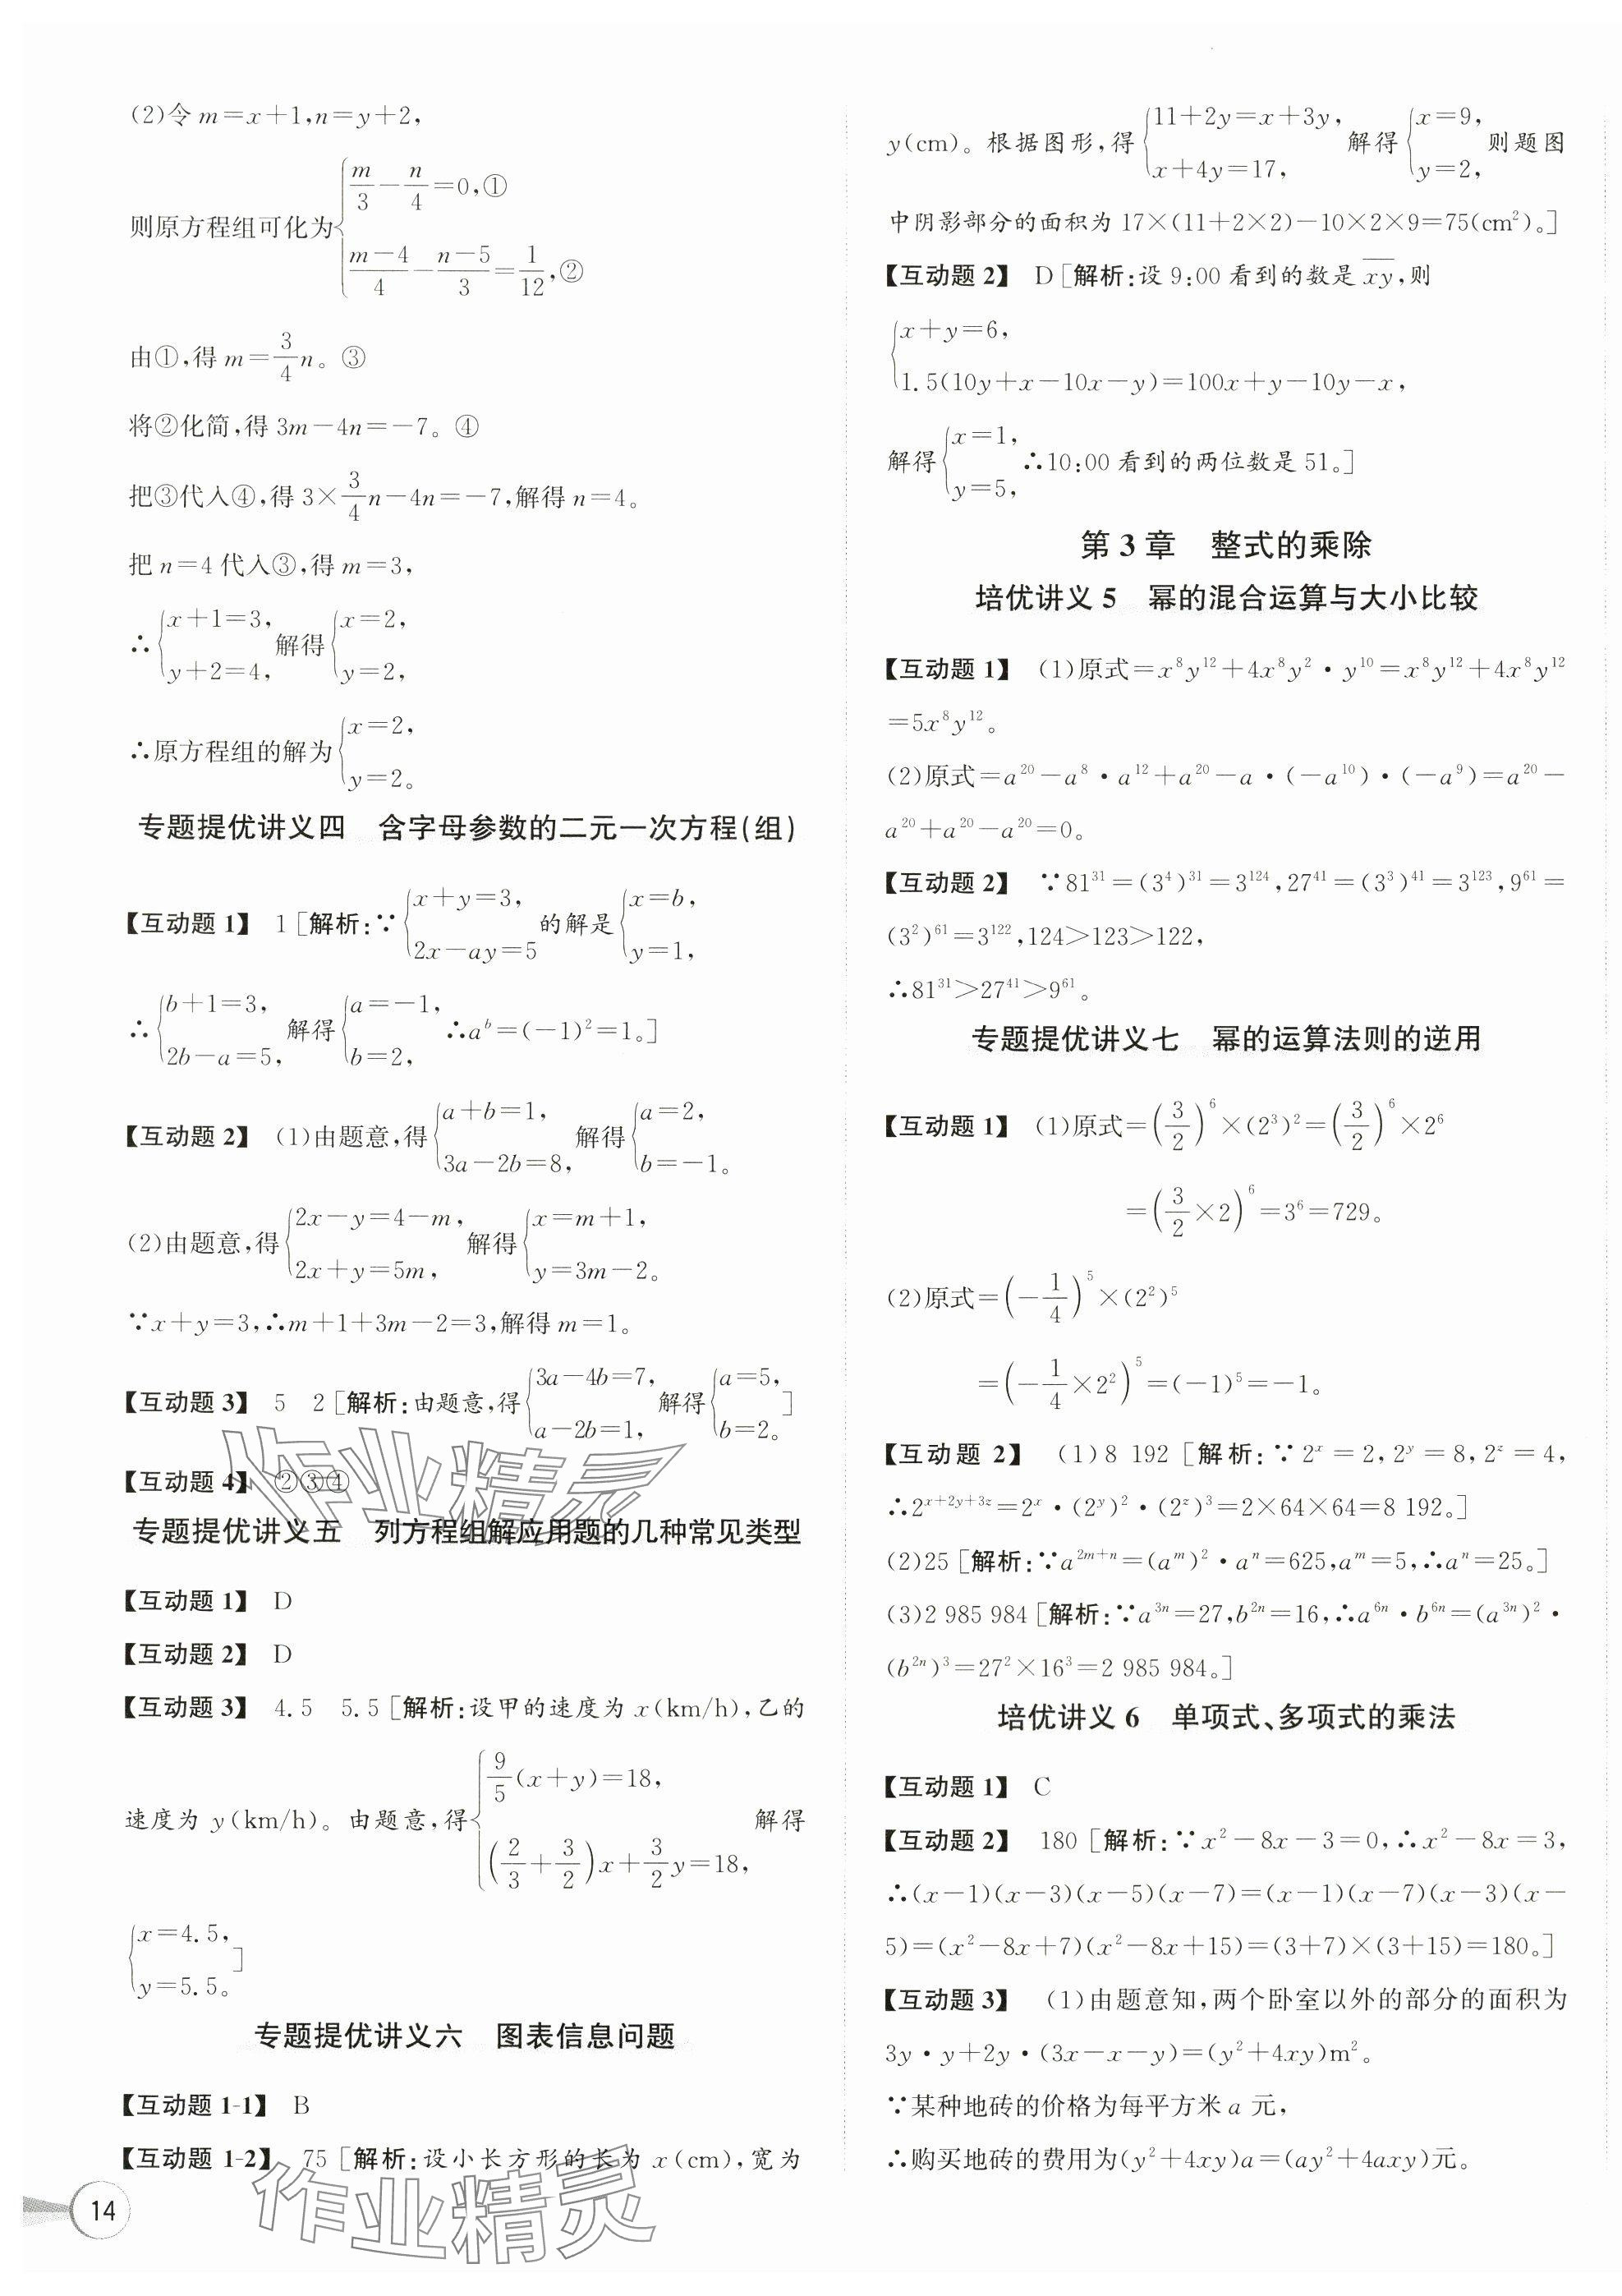 (2)令 m=x+1,n=y+2,
则原方程组可化为{m/3-n/4=0,①
(m-4)/4-(n-5)/3=1/12,②
由①,得 m=3/4n。③
将②化简,得 3m-4n=-7。④
把③代入④,得 3×3/4n-4n=-7,解得 n=4。
把 n=4 代入③,得 m=3,
∴{x+1=3, y+2=4, 解得{x=2, y=2,
∴原方程组的解为{x=2, y=2。
专题提优讲义四 含字母参数的二元一次方程(组)
【互动题 1】 1 [解析:∵{x+y=3, 2x-ay=5 的解是{x=b, y=1,
∴{b+1=3, 2b-a=5, 解得{a=-1, b=2, ∴a^b=(-1)²=1。]
【互动题 2】 (1)由题意,得{a+b=1, 3a-2b=8, 解得{a=2, b=-1。
(2)由题意,得{2x-y=4-m, 2x+y=5m, 解得{x=m+1, y=3m-2。
∵x+y=3,∴m+1+3m-2=3,解得 m=1。
【互动题 3】 5 2 [解析:由题意,得{3a-4b=7, a-2b=1, 解得{a=5, b=2。]
【互动题 4】 ②③④
专题提优讲义五 列方程组解应用题的几种常见类型
【互动题 1】 D
【互动题 2】 D
【互动题 3】 4.5 5.5 [解析:设甲的速度为 x(km/h),乙的
速度为 y(km/h)。由题意,得{9/5(x+y)=18, (2/3+3/2)x+3/2y=18, 解得
{x=4.5, y=5.5。]
专题提优讲义六 图表信息问题
【互动题 1-1】 B
【互动题 1-2】 75 [解析:设小长方形的长为 x(cm),宽为
14
y(cm)。根据图形,得{11+2y=x+3y, x+4y=17, 解得{x=9, y=2, 则题图
中阴影部分的面积为 17×(11+2×2)-10×2×9=75(cm²)。]
【互动题 2】 D [解析:设 9:00 看到的数是 x̅y̅,则
{x+y=6,
1.5(10y+x-10x-y)=100x+y-10y-x,
解得{x=1, y=5, ∴10:00 看到的两位数是 51。]
第 3 章 整式的乘除
培优讲义 5 幂的混合运算与大小比较
【互动题 1】 (1)原式=x⁸y¹²+4x⁸y²·y¹⁰=x⁸y¹²+4x⁸y¹²
=5x⁸y¹²。
(2)原式=a²⁰-a⁸·a¹²+a²⁰-a·(-a¹⁰)·(-a⁹)=a²⁰-
a²⁰+a²⁰-a²⁰=0。
【互动题 2】 ∵81³¹=(3⁴)³¹=3¹²⁴,27⁴¹=(3³)⁴¹=3¹²³,9⁶¹=
(3²)⁶¹=3¹²²,124>123>122,
∴81³¹>27⁴¹>9⁶¹。
专题提优讲义七 幂的运算法则的逆用
【互动题 1】 (1)原式=(3/2)⁶×(2³)²=(3/2)⁶×2⁶
=(3/2×2)⁶=3⁶=729。
(2)原式=(-1/4)⁵×(2²)⁵
=(-1/4×2²)⁵=(-1)⁵=-1。
【互动题 2】 (1)8 192 [解析:∵2^x=2,2^y=8,2^z=4,
∴2^(x+2y+3z)=2^x·(2^y)²·(2^z)³=2×64×64=8 192。]
(2)25 [解析:∵a^(2m+n)=(a^m)²·a^n=625,a^m=5,∴a^n=25。]
(3)2 985 984 [解析:∵a^(3n)=27,b^(2n)=16,∴a^(6n)·b^(6n)=(a^(3n))²·
(b^(2n))³=27²×16³=2 985 984。]
培优讲义 6 单项式、多项式的乘法
【互动题 1】 C
【互动题 2】 180 [解析:∵x²-8x-3=0,∴x²-8x=3,
∴(x-1)(x-3)(x-5)(x-7)=(x-1)(x-7)(x-3)(x-
5)=(x²-8x+7)(x²-8x+15)=(3+7)×(3+15)=180。]
【互动题 3】 (1)由题意知,两个卧室以外的部分的面积为
3y·y+2y·(3x-x-y)=(y²+4xy)m²。
∵某种地砖的价格为每平方米 a 元,
∴购买地砖的费用为(y²+4xy)a=(ay²+4axy)元。
作业精灵
作业精灵